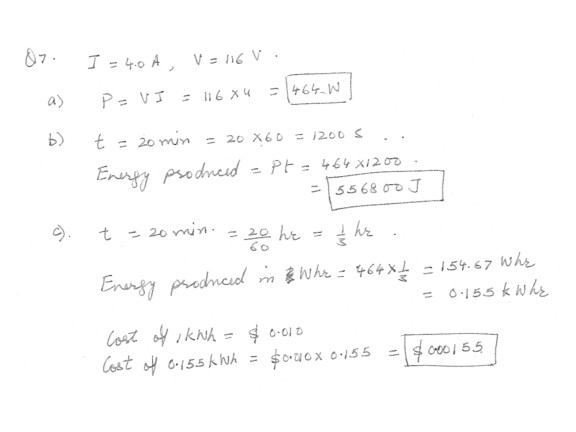 Q7. I = 4.0 A, V = 116 V.
a) P = VI = 116 x 4 = 464 W
b) t = 20 min = 20 x 60 = 1200 s ..
Energy produced = Pt = 464 x 1200.
= 556800 J
c). t = 20 min. = 20/60 hr = 1/3 hr.
Energy produced in Whr = 464 x 1/3 = 154.67 Whr
= 0.155 kWhr
Cost of 1 kWh = $ 0.010
Cost of 0.155 kWh = $0.010 x 0.155 = $ 0.00155